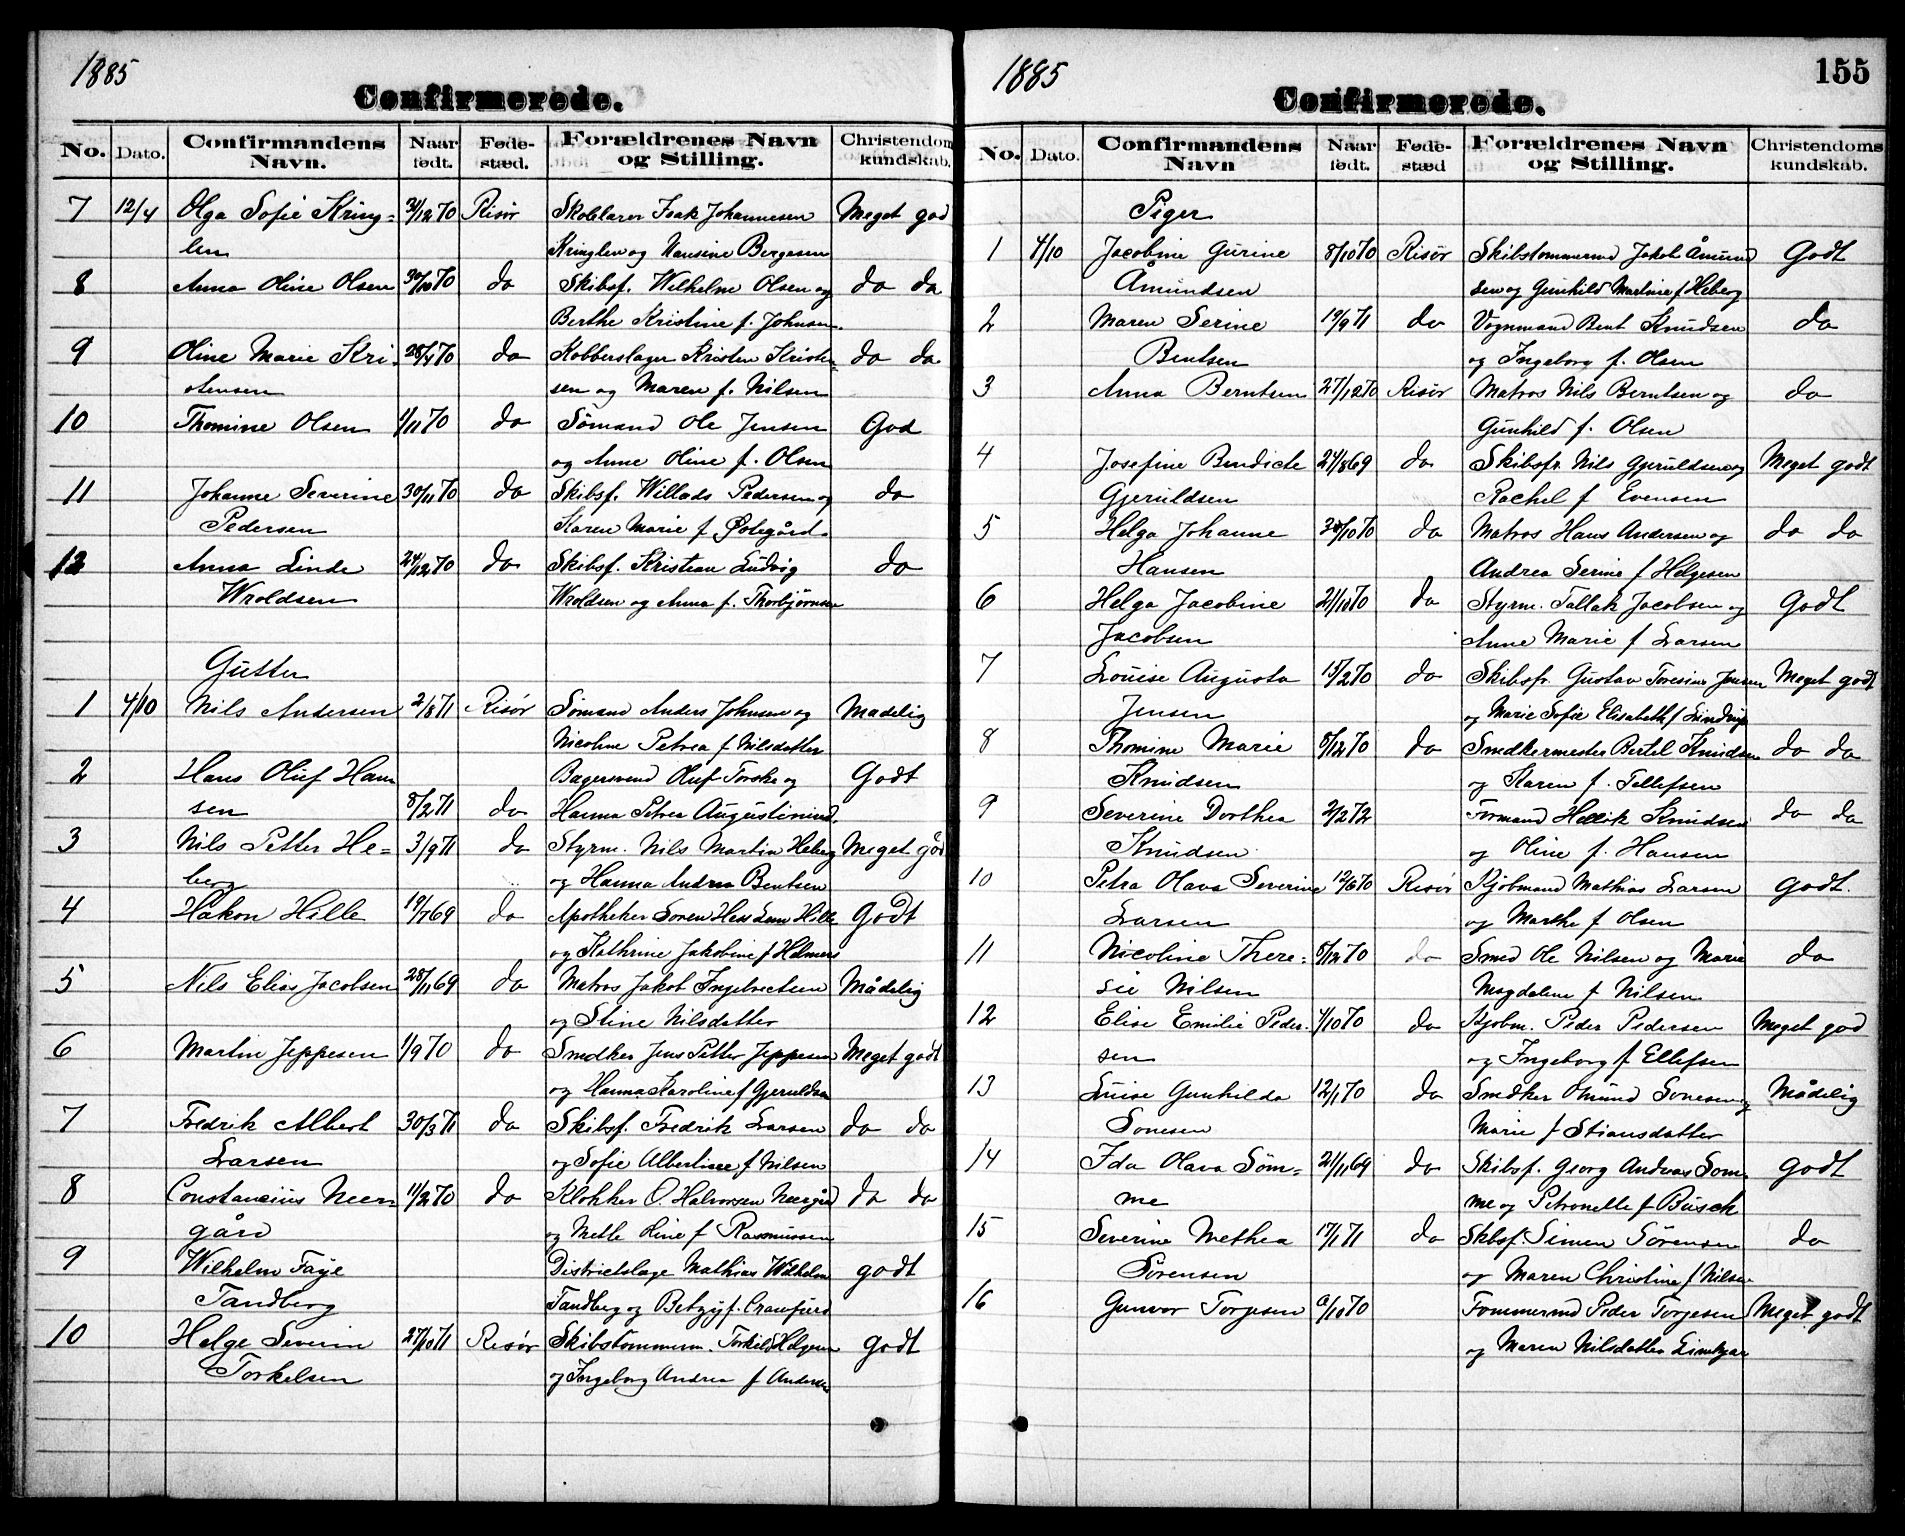 1885
Confirmerede.
No. Dato. Confirmandens Navn. Naar født. Fødestæd. Forældrenes Navn og Stilling. Christendomskundskab.
7 12/4 Olga Sofie Kring= 31/12 70 Risør Skolelærer Isak Johannesen Meget god
len Kringlen og Nansine Børgesen
8 Anna Oline Olsen 30/10 70 do Skibsf. Wilhelm Olsen og do do
Berthe Kristine f. Johnsen.
9 Oline Marie Kri- 28/4 70 do Kobberslager Kristen Kristen= do do
stensen sen og Maren f. Nilsen
10 Thomine Olsen 1/11 70 do Sømand Ole Jensen God
og Anne Oline f. Olsen
11 Johanne Severine 30/11 70 do Skibsf. Willads Pedersen og do
Pedersen Karen Marie f Ødegård.
12 Anna Linde 24/12 70 do Skibsf. Kristian Ludvig do
Wroldsen Wroldsen og Anna f. Thorbjørnsen
Gutter
1 4/10 Nils Andersen 2/8 71 Risør Sømand Anders Johnsen og Madelig
Nicoline Petrea f Nilsdatter
2 Hans Oluf Han Bagersvend Oluf Torske og Godt
sen 8/2 71 do Hanna Petrea Augustinusd.
3 Nils Petter He= 3/9 71 do Styrm. Nils Martin Heberg Meget god
berg og Hanna Andrea Bentsen
4 Håkon Hille 19/7 69 do Apotheker Søren Hess Lem Hille Godt
og Kathrine Jakobine f Helmers
5 Nils Elias Jacobsen 28/11 69 do Matros Jakob Ingebrectsen Mådelig
og Stine Nilsdatter
6 Martin Jeppesen 1/9 70 do Snedker Jens Petter Jeppesen Meget godt
og Hanna Karoline f Gjeruldsen
7 Fredrik Albert 30/3 71 do Skibsf. Fredrik Larsen do do
Larsen og Sofie Albertine f Nilsen
8 Constancius Neer= 11/2 70 do Klokker O. Halvorsen Neergård do do
gård og Mette Oline f Rasmussen
9 Wilhelm Faye Districtslæge Mathias Wilhelm godt
Tandberg Tandberg og Betzy f. Crawfurd
10 Helge Severin 27/10 71 Risør Skibstømmerm. Torkild Helgesen godt
Torkelsen og Ingeborg Andrea f Andersen
1885
155
Confirmerede.
No. Dato. Confirmandens Navn Naar født. Fødestæd Forældrenes Navn og Stilling. Christendomskundskab.
Piger
1 4/10 Jacobine Gurine 8/10 70 Risør Skibstømmermd Jakob Åmund Godt
Åmundsen sen og Gunhild Martine f Heberg
2 Maren Serine 19/9 71 do Vognmand Bent Knudsen do
Bentsen og Ingeborg f. Olsen
3 Anna Berntsen 27/12 70 Risør Matros Nils Berntsen og do
Gunhild f. Olsen
4 Josefine Bendicte 24/8 69 do Skibsfr. Nils Gjeruldsen og Meget godt
Gjeruldsen Rachel f Evensen
5 Helga Johanne 30/10 70 do Matros Hans Andersen og do do
Hansen Andrea Serine f Helgesen
6 Helga Jacobine 21/10 70 do Styrm. Tallak Jacobsen og Godt
Jacobsen Anne Marie f Larsen
7 Louise Augusta 15/2 70 do Skibsfr. Gustav Toresius Jensen Meget godt
Jensen og Marie Sofie Elisabeth f Lindrup
8 Thomine Marie 8/12 70 do Snedkermester Bertel Knudsen do do
Knudsen og Karen f. Tellefsen
9 Severine Dorthea 2/2 72 Formand Hellik Knudsen do do
Knudsen og Oline f. Hansen
10 Petra Olava Severine 12/6 70 Risør Kjøbmand Mathias Larsen godt.
Larsen og Marthe f Olsen
11 Nicoline There= 8/12 70 do Smed Ole Nilsen og Marie do
sie Nilsen Magdalene f Nilsen
12 Elise Emilie Peder- 1/10 70 do Kjøbm. Peder Pedersen Meget god
sen og Ingeborg f Ellefsen
13 Luise Gunhilda 12/1 70 do Snedker Omund Sonesen og Mådelig
Sonesen Marie f Stiansdatter
14 Ida Olava Søm= 21/11 69 do Skibsf. Georg Andreas Søm godt
me me og Petronelle f Busch
15 Severine Methea 17/1 71 do Skbsf. Simen Sørensen do
Sørensen og Maren Christine f Nilsen
16 Gunvor Torjesen /10 70 Tømmermd Peder Torjesen Meget godt
og Maren Nilsdatter